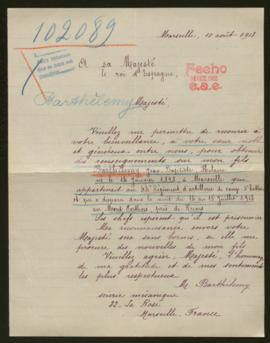 102089
Marseille, 10 août 1918
A sa Majesté
le roi d'Espagne,
Fecho
Barthélemy
Majesté,
Veuillez me permettre de recourir à
votre bienveillance, à votre sens noble
et généreux entre tous, pour obtenir
des renseignements sur mon fils
Barthélemy Jean Baptiste
né le 16 janvier 1898 à Marseille qui
appartient au Régiment d'artillerie de camp
et qui a disparu dans la nuit du 14 au 15 juillet 1918
au Mont
Ses chefs espèrent qu'il est prisonnier
Ma reconnaissance envers votre
Majesté sera sans bornes, si elle me
procure des nouvelles de mon fils
Veuillez agréer, Majesté, l'hommage
de ma gratitude et de mes sentiments
les plus respectueux
M. Barthélemy
scierie mécanique
La Rose
Marseille, France